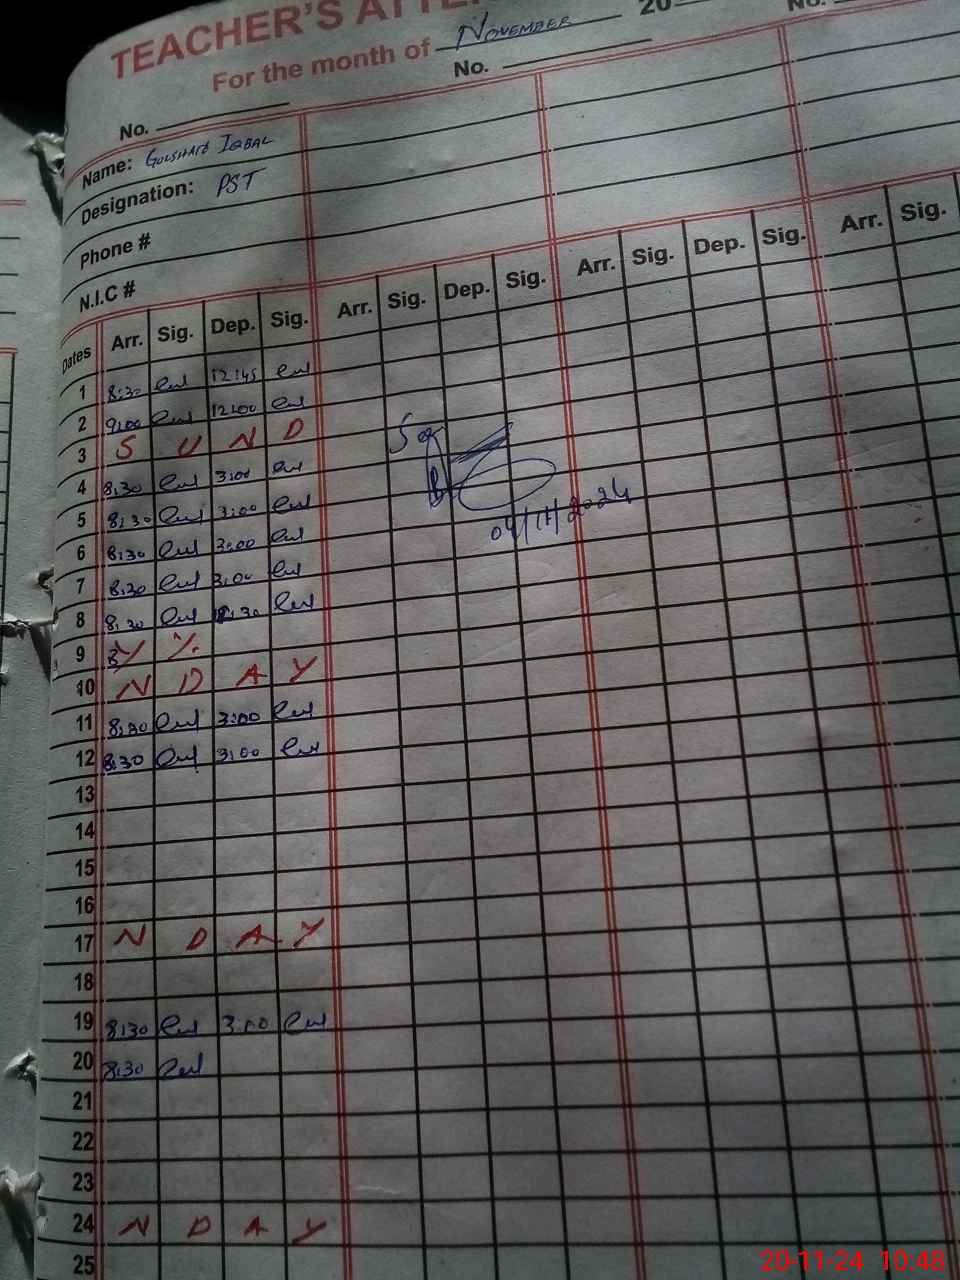 TEACHER'S ATTE
For the month of November 20
No. No. No.
Name: Gulshad Iqbal
Designation: PST
Phone #
N.I.C #
Dates Arr. Sig. Dep. Sig. Arr. Sig. Dep. Sig. Arr. Sig. Dep. Sig. Arr. Sig.
1 8:30 12:45
2 9:00 12:00
3 S U N D
4 8:30 3:00
5 8:30 3:00
6 8:30 3:00
7 8:30 3:00
8 8:30 :30
04/11/2024
9
10 N D A Y
11 8:30 3:00
12 8:30 3:00
13
14
15
16
17 N D A Y
18
19 8:30 3:00
20 8:30
21
22
23
24 N D A Y
25
20-11-24 10:48